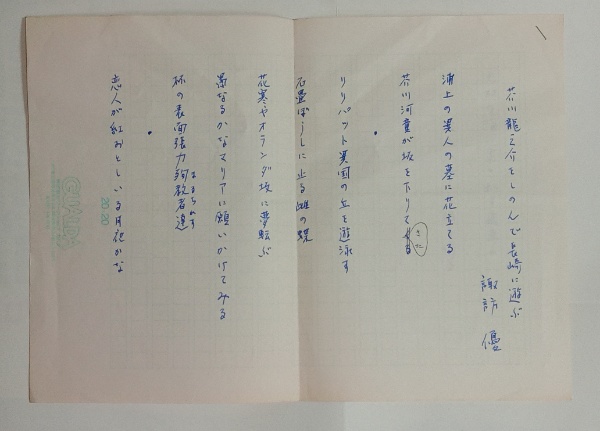 芥川龍之介をしのんで長崎に遊ぶ
諏訪 優
浦上の異人の墓に花立てる
芥川河童が坂を下りて
きた
リリパット異国の丘を遊泳す
石畳ぼうしに止る雌の蝶
花寒やオランダ坂に夢転ぶ
愚なるかなマリアに願いかけてみる
杯の表面張力殉教者達
恋人が紅おとしいる月夜かな
GUARDIA
20 20